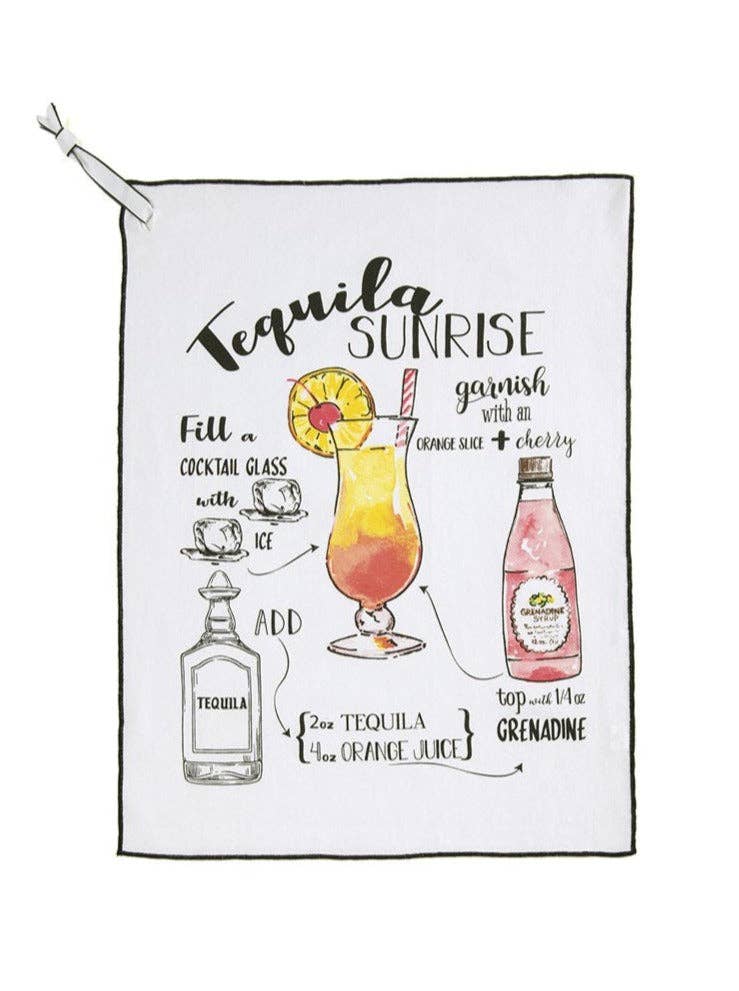 Tequila
SUNRISE
garnish
with an
ORANGE SLICE + cherry
Fill a
COCKTAIL GLASS
with
ICE
ADD
TEQUILA
2oz TEQUILA
4oz ORANGE JUICE
GRENADINE
SYRUP
top with 1/4 oz
GRENADINE